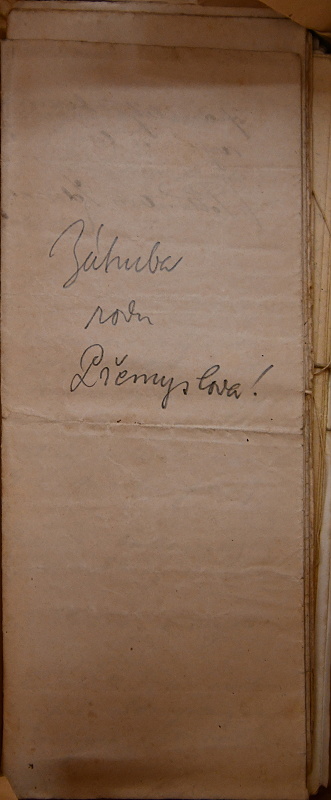 Záhuba
rodu
Přemyslova!